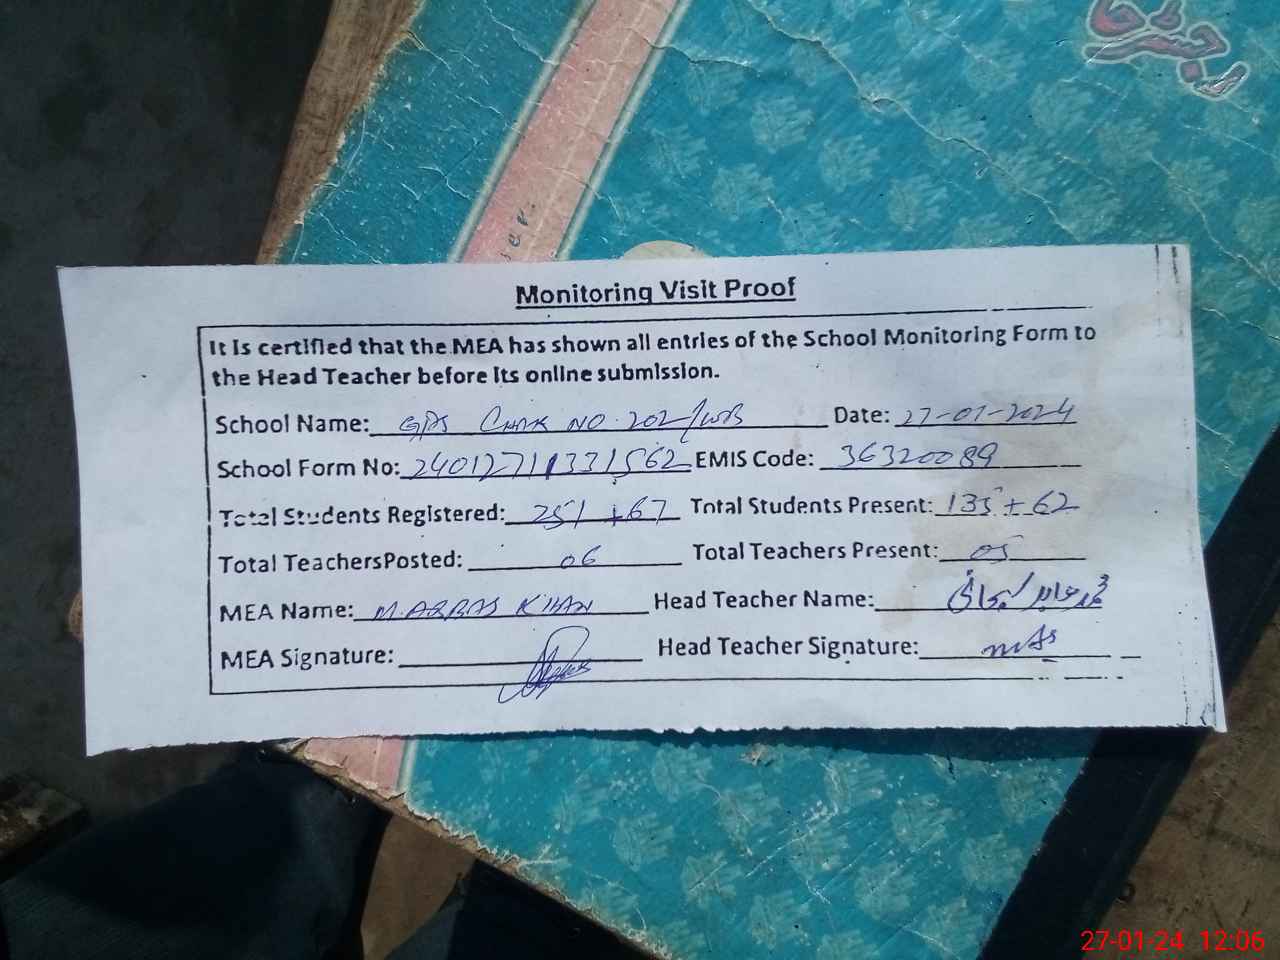 رجسٹر
er.
Monitoring Visit Proof
It is certified that the MEA has shown all entries of the School Monitoring Form to
the Head Teacher before its online submission.
School Name: GPS CHAK NO. 202/WB Date: 27-01-2024
School Form No: 24012711331562 EMIS Code: 36320089
Total Students Registered: 251 +67 Total Students Present: 135 + 62
Total TeachersPosted: 06 Total Teachers Present: 05
MEA Name: M. ABBAS KHAN Head Teacher Name:
MEA Signature: Head Teacher Signature:
27-01-24 12:06